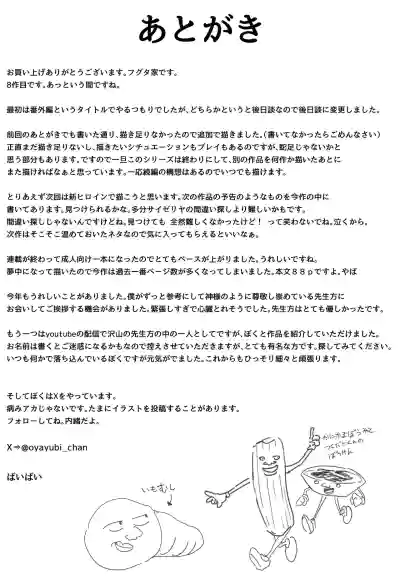 あとがき
お買い上げありがとうございます。フグタ家です。
8作目です。あっという間ですね。
最初は番外編というタイトルでやるつもりでしたが、どちらかというと後日談なので後日談に変更しました。
前回のあとがきでも書いた通り、描き足りなかったので追加で描きました。(書いてなかったらごめんなさい)
正直まだ描き足りないし、描きたいシチュエーションもプレイもあるのですが、蛇足じゃないかと
思う部分もあります。ですので一旦このシリーズは終わりにして、別の作品を何作か描いたあとに
また描ければなぁと思っています。一応続編の構想はあるのでいつでも描けます。
とりあえず次回は新ヒロインで描こうと思います。次の作品の予告のようなものを今作の中に
書いてあります。見つけられるかな。多分サイゼリヤの間違い探しより難しいかもです。
間違い探しじゃないんですけどね。見つけても 全然難しくなかったけど! って笑わないでね。泣くから。
次作はそこそこ温めておいたネタなので気に入ってもらえるといいなぁ。
連載が終わって成人向け一本になったのでとてもペースが上がりました。うれしいですね。
夢中になって描いたので今作は過去一番ページ数が多くなってしまいました。本文88pですよ。やば
今年もうれしいことがありました。僕がずっと参考にして神様のように尊敬し崇めている先生方に
お会いしてご挨拶する機会がありました。緊張しすぎで心臓とれそうでした。先生方はとても優しかったです。
もう一つはyoutubeの配信で沢山の先生方の中の一人としてですが、ぼくと作品を紹介していただけました。
お名前は書くとご迷惑になるかもなので控えさせていただきますが、とても有名な方です。探してみてください。
いつも何かで落ち込んでいるぼくですが元気がでました。これからもひっそり細々と頑張ります。
そしてぼくはXをやっています。
病みアカじゃないです。たまにイラストを投稿することがあります。
フォローしてね。内緒だよ。
X⇒@oyayubi_chan
ばいばい
いもむし